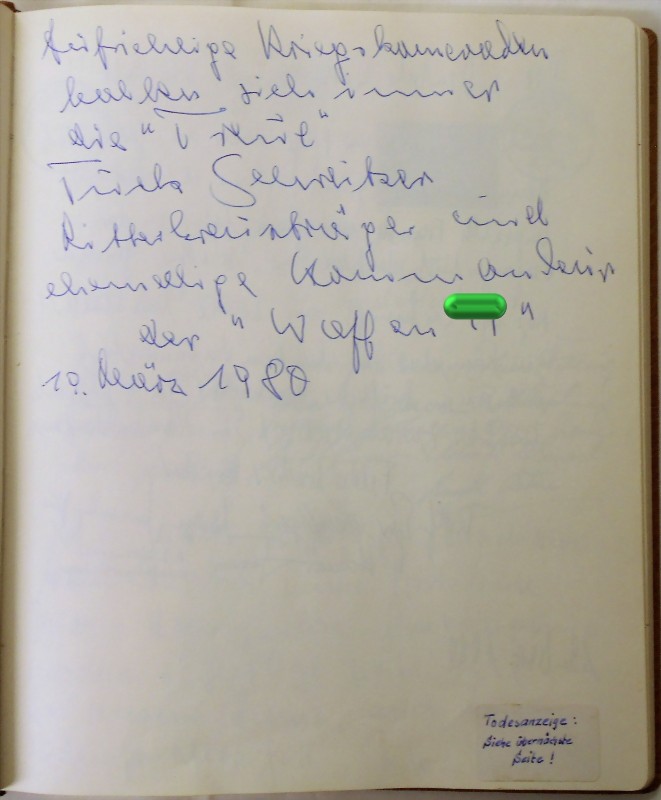 Aufrichtige Kriegskameraden
halten sich immer
die "Treue"
Ritterkreuzträger und
ehemalige Kommandeur
der "Waffen "
10. März 1980
Todesanzeige:
Siehe übernächste
Seite!